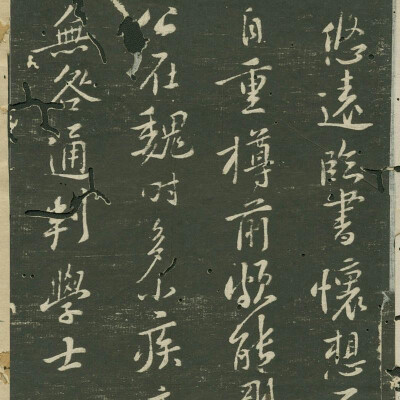 悠遠臨書懷想
自重樽前頗能
在魏時多小疾
無咎通判學士